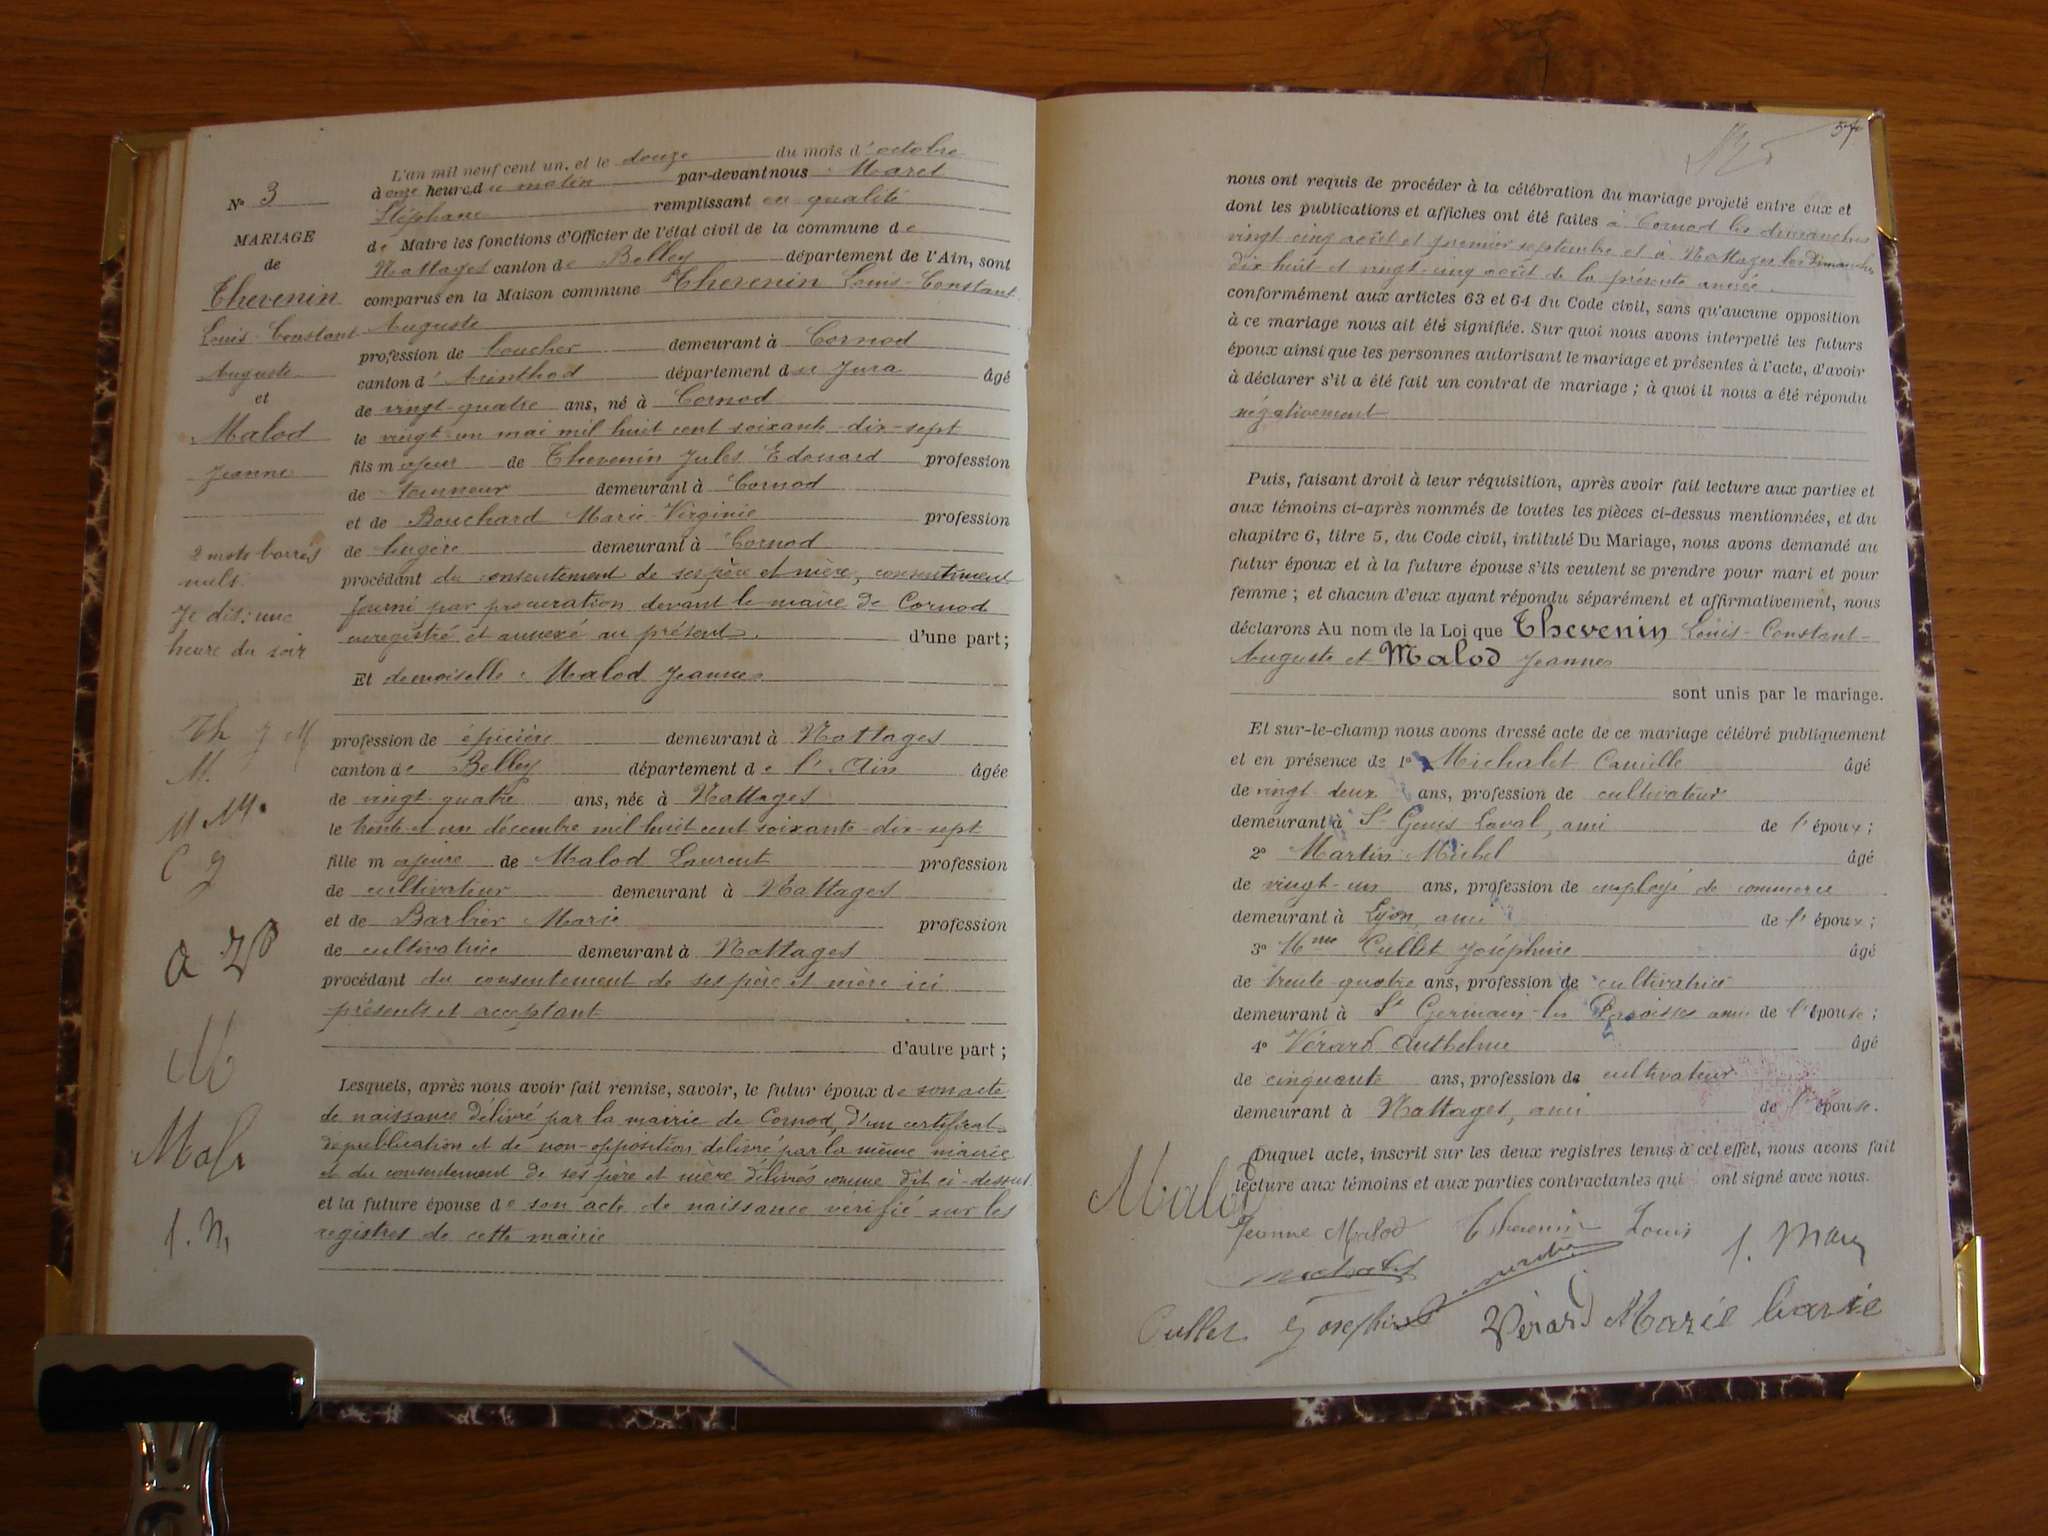 L'an mil neuf cent un, et le douze du mois d'octobre
à onze heure du matin par-devant nous Maret
Stéphane remplissant en qualité
de Maire les fonctions d'Officier de l'état civil de la commune de
Nattages canton de Belley département de l'Ain, sont
comparus en la Maison commune Thevenin Louis-Constant
Auguste
profession de boucher demeurant à Cornod
canton d'Arinthod département du Jura âgé
de vingt-quatre ans, né à Cornod
le vingt un mai mil huit cent soixante-dix-sept
fils majeur de Thevenin Jules Edouard profession
de tourneur demeurant à Cornod
et de Bouchard Marie-Virginie profession
de lingère demeurant à Cornod
procédant du consentement de ses père et mère, consentiment
fourni par procuration devant le maire de Cornod
enregistré et annexé au présent. d'une part;
Et demoiselle : Malod Jeanne
profession de épicière demeurant à Nattages
canton de Belley département de l'Ain âgée
de vingt quatre ans, née à Nattages
le trente et un décembre mil huit cent soixante-dix-sept
fille majeure de Malod Laurent profession
de cultivateur demeurant à Nattages
et de Barbier Marie profession
de cultivatrice demeurant à Nattages
procédant du consentement de ses père et mère ici
présents et acceptant
d'autre part;
Lesquels, après nous avoir fait remise, savoir, le futur époux de son acte
de naissance délivré par la mairie de Cornod, d'un certificat
de publication et de non-opposition délivré par la même mairie
et du consentement de ses père et mère délivrés comme dit ci-dessus
et la future épouse de son acte de naissance vérifié sur les
registres de cette mairie
N° 3
MARIAGE
de
Thevenin
Louis-Constant
Auguste
et
Malod
Jeanne
2 mots barrés
nuls
Je dis : une
heure du soir
Th J M
M.
M M.
C J
a V
M
Malo
S. M
57
nous ont requis de procéder à la célébration du mariage projeté entre eux et
dont les publications et affiches ont été faites à Cornod les dimanches
vingt cinq août et premier septembre et à Nattages les Dimanches
dix huit et vingt-cinq août de la présente année.
conformément aux articles 63 et 64 du Code civil, sans qu'aucune opposition
à ce mariage nous ait été signifiée. Sur quoi nous avons interpellé les futurs
époux ainsi que les personnes autorisant le mariage et présentes à l'acte, d'avoir
à déclarer s'il a été fait un contrat de mariage ; à quoi il nous a été répondu
négativement
Puis, faisant droit à leur réquisition, après avoir fait lecture aux parties et
aux témoins ci-après nommés de toutes les pièces ci-dessus mentionnées, et du
chapitre 6, titre 5, du Code civil, intitulé Du Mariage, nous avons demandé au
futur époux et à la future épouse s'ils veulent se prendre pour mari et pour
femme ; et chacun d'eux ayant répondu séparément et affirmativement, nous
déclarons Au nom de la Loi que Thevenin Louis-Constant-
Auguste et Malod Jeanne
sont unis par le mariage.
Et sur-le-champ nous avons dressé acte de ce mariage célébré publiquement
et en présence de 1° Michalet Camille âgé
de vingt deux ans, profession de cultivateur
demeurant à St Genis Laval, ami de l'époux;
2° Martin Michel âgé
de vingt-un ans, profession de employé de commerce
demeurant à Lyon, ami de l'époux;
3° Mme Cullet Joséphine âgé
de trente-quatre ans, profession de cultivatrice
demeurant à St Germain-les Paroisses amie de l'épouse;
4° Vérard Anthelme âgé
de cinquante ans, profession de cultivateur
demeurant à Nattages, ami de l'épouse.
Duquel acte, inscrit sur les deux registres tenus à cet effet, nous avons fait
lecture aux témoins et aux parties contractantes qui ont signé avec nous.
Malod
Jeanne Malod Thevenin Louis
Cullet Joséphine Vérard Marie